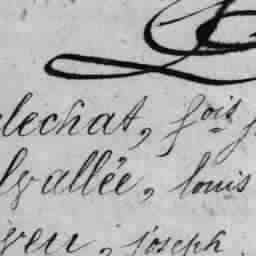 lechat, fois
lvallée, louis
yeu, joseph